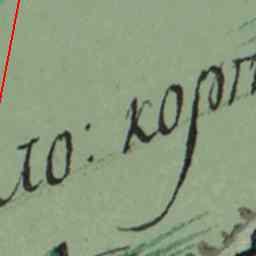 ло: корп